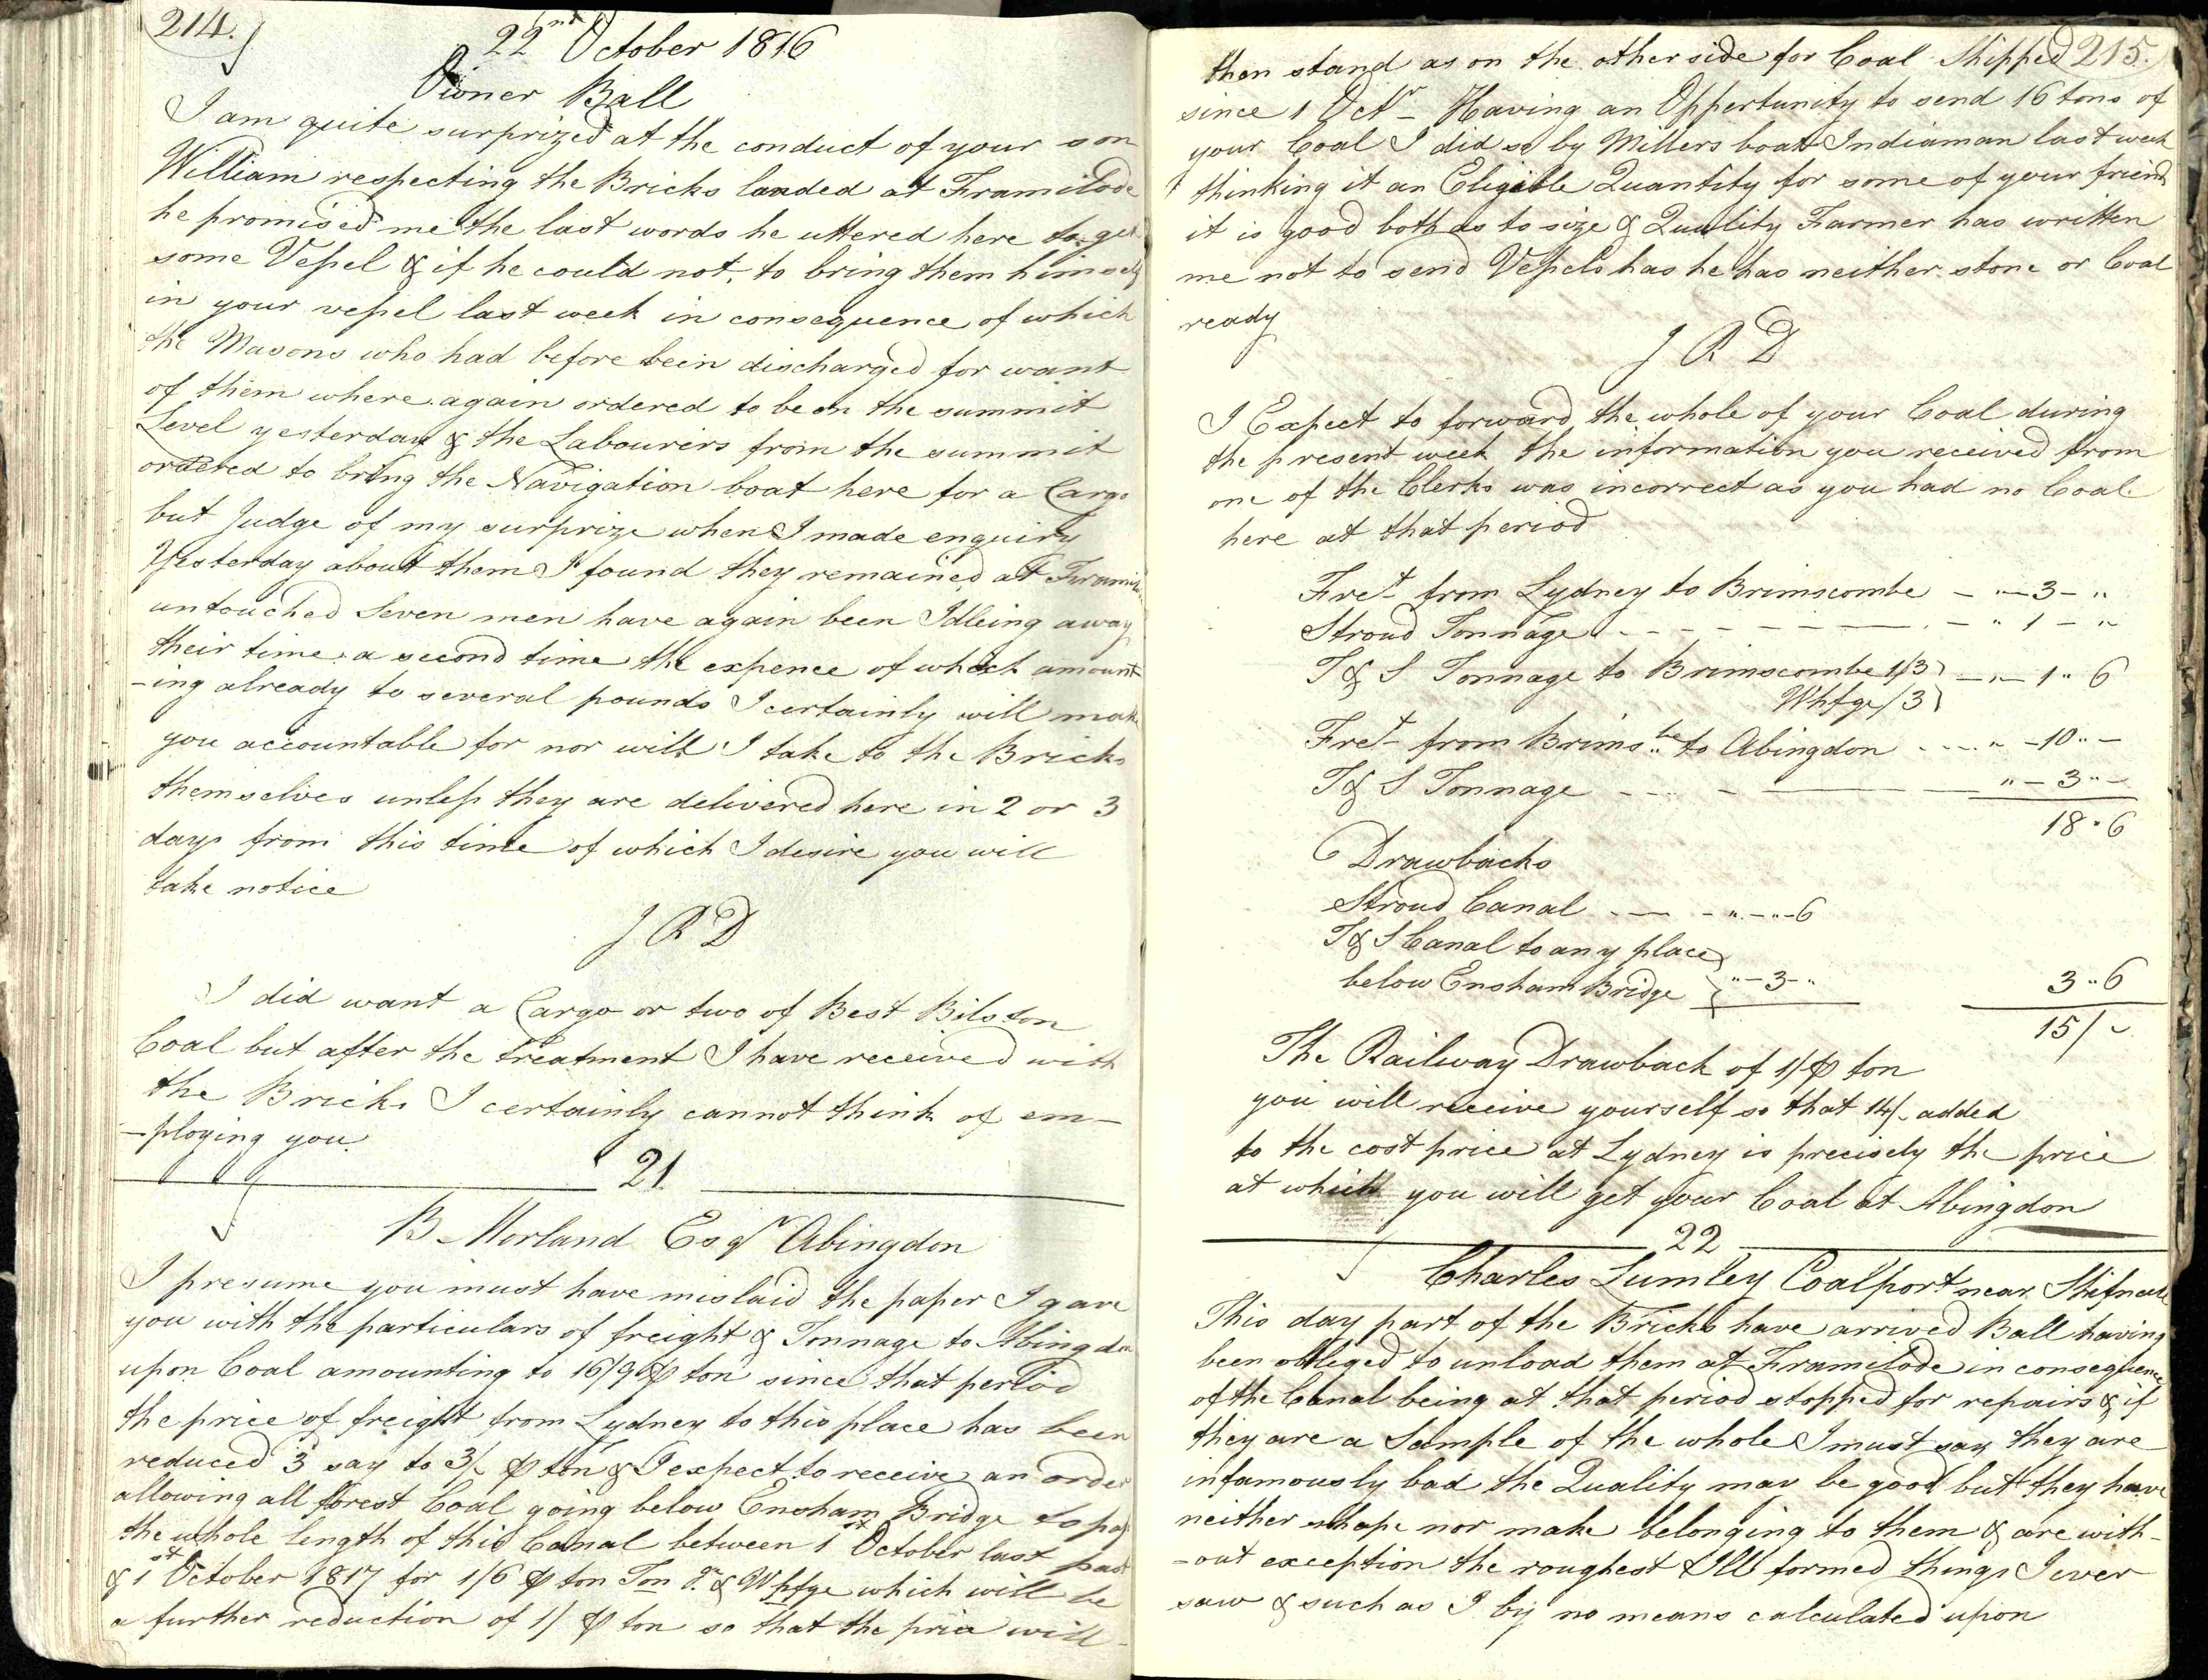 214.
22nd October 1816
Pioner Ball
I am quite surprized at the conduct of your son
William respecting the Bricks landed at Framilode
he promised me the last words he uttered here to get
some Vessel & if he could not, to bring them himself
in your vessel last week in consequence of which
the Masons who had before bein discharged for want
of them where again ordered to be on the summit
Level yesterday & the Labourers from the summit
ordered to bring the Navigation boat here for a Cargo
but Judge of my surprize when I made enquiry
Yesterday about them I found they remained at Framilo.
untouched Seven men have again been Idleing away
their time a second time the expence of which amount
-ing already to several pounds I certainly will make
you accountable for nor will I take to the Bricks
themselves unless they are delivered here in 2 or 3
days from this time of which I desire you will
take notice
J R D
I did want a Cargo or two of Best Bilston
Coal but after the treatment I have received with
the Bricks I certainly cannot think of em-
-ploying you
21
B Morland Esqr Abingdon
I presume you must have mislaid the paper I gave
you with the particulars of freight & Tonnage to Abingdon
upon Coal amounting to 16/9 ⅌ ton since that period
the price of freight from Lydney to this place has been
reduced 3 say to 3/- ⅌ ton & I expect to receive an order
allowing all forest Coal going below Ensham Bridge to pay
the whole length of this Canal between 1st October last past
& 1st October 1817 for 1/6 ⅌ ton Ton & Whfge which will be
a further reduction of 1/ ⅌ ton so that the price will
215.
then stand as on the other side for Coal Shipped
since 1 Octr - Having an Oppertunity to send 16 tons of
your Coal I did so by Millers boat Indiaman last week
thinking it an Eligible Quantity for some of your friends
it is good both as to size & Quality Farmer has written
me not to send Vessels has he has neither stone or Coal
ready
J R D
I Expect to forward the whole of your Coal during
the present week the information you received from
one of the Clerks was incorrect as you had no Coal
here at that period
Fret from Lydney to Brimscombe - " - 3 - "
Stroud Tonnage - - - - - " 1 - "
T & S Tonnage to Brimscombe 1/3 } - " - 1 " 6
Whfge /3 }
Fret from Brimsbe to Abingdon .... " - 10 " -
T & S Tonnage - - - - " - 3 " -
18 " 6
Drawbacks
Stroud Canal - - - " - " - 6
T & S Canal to any place }
below Ensham Bridge } " - 3 - " 3 " 6
15/-
The Railway Drawback of 1/ ⅌ ton
you will receive yourself so that 14/- added
to the cost price at Lydney is precisely the price
at which you will get your Coal at Abingdon
22
Charles Lumley Coalport near Shifneall
This day part of the Bricks have arrived Ball having
been obleged to unload them at Framilode in consequence
of the Canal being at that period stopped for repairs & if
they are a Sample of the whole I must say they are
infamously bad the Quality may be good but they have
neither shape nor make belonging to them & are with-
-out exception the roughest & Ill formed things I ever
saw & such as I by no means calculated upon